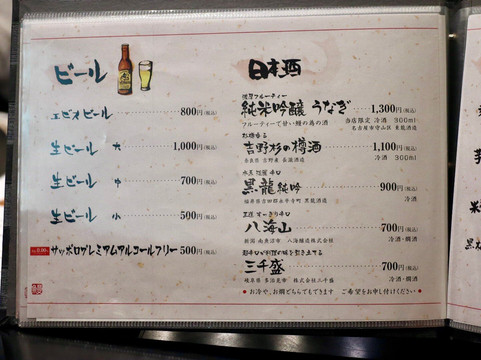 ビール
エビスビール 800円(税込)
生ビール 大 1,000円(税込)
生ビール 中 700円(税込)
生ビール 小 500円(税込)
サッポロプレミアムアルコールフリー 500円(税込)
日本酒
純米吟醸 うなぎ 1,300円(税込)
フルーティーで甘い鰻の為の酒
当店限定 冷酒 300ml
名古屋市守山区 東龍酒造
吉野杉の樽酒 1,100円(税込)
奈良県 吉野産 長龍酒造
冷酒 300ml
黒龍 純吟 900円(税込)
福井県吉田郡永平寺町 黒龍酒造
冷酒
八海山 700円(税込)
新潟 南魚沼市 八海醸造株式会社
冷酒・燗酒
三千盛 700円(税込)
岐阜県 多治見市 株式会社三千盛
冷酒・燗酒
● お冷や、お燗どちらでもできます ご希望をお申し付けください ●